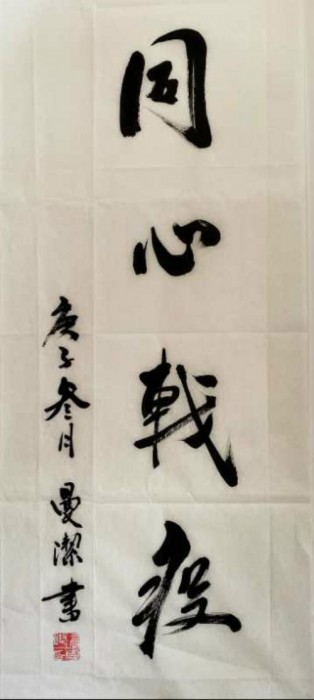 同心戰疫
庚子叁月 曼潔書